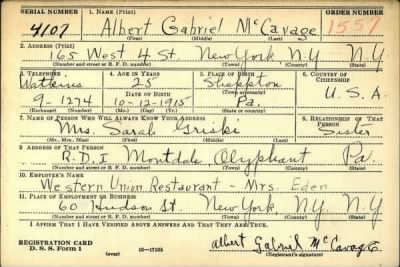 SERIAL NUMBER 1. NAME (Print) ORDER NUMBER
4107 Albert Gabriel McCavage 1557
(First) (Middle) (Last)
2. ADDRESS (Print)
165 West 4 St. New York N.Y NY
(Number and street or R. F. D. number) (Town) (County) (State)
3. TELEPHONE 4. AGE IN YEARS 5. PLACE OF BIRTH 6. COUNTRY OF CITIZENSHIP
Watkins 25 Sheppton
DATE OF BIRTH
9-1274 10-12-1915 Pa. U.S.A.
(Exchange) (Number) (Mo.) (Day) (Yr.) (State or country)
7. NAME OF PERSON WHO WILL ALWAYS KNOW YOUR ADDRESS 8. RELATIONSHIP OF THAT PERSON
Mrs. Sarah Griski Sister
(Mr., Mrs., Miss) (First) (Middle) (Last)
9. ADDRESS OF THAT PERSON
R.D.1 Montdale Olyphant Pa.
(Number and street or R. F. D. number) (Town) (County) (State)
10. EMPLOYER'S NAME
Western Union Restaurant - Mrs. Eden
11. PLACE OF EMPLOYMENT OR BUSINESS
60 Hudson St New York, NY NY
(Number and street or R. F. D. number) (Town) (County) (State)
I AFFIRM THAT I HAVE VERIFIED ABOVE ANSWERS AND THAT THEY ARE TRUE.
REGISTRATION CARD
D. S. S. Form 1 (over) 16-17105 Albert Gabriel McCavage
(Registrant's signature)